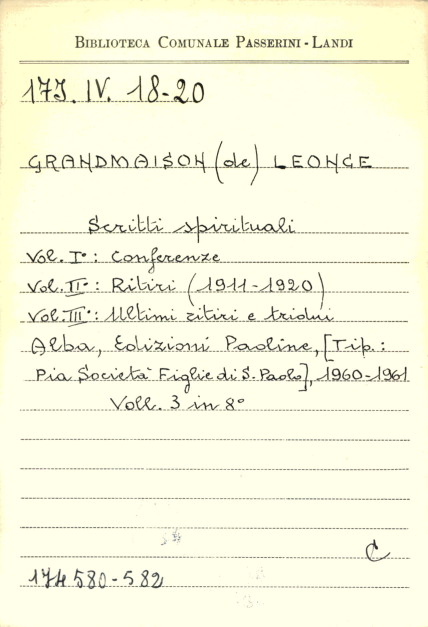 BIBLIOTECA COMUNALE PASSERINI-LANDI
17J. IV. 18-20
GRANDMAISON (de) LEONCE
Scritti spirituali
Vol. I°: Conferenze
Vol. II°: Ritiri (1911-1920)
Vol. III°: Ultimi ritiri e tridui
Alba, Edizioni Paoline, [Tip.:
Pia Società Figlie di S. Paolo], 1960-1961
Voll. 3 in 8°
C
174580-582